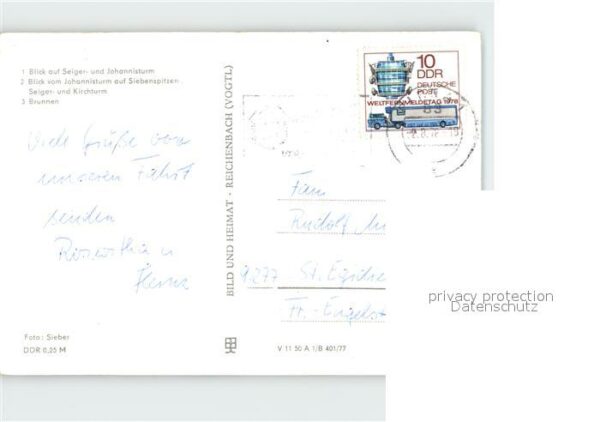 1 Blick auf Seiger- und Johannisturm
2 Blick vom Johannisturm auf Siebenspitzen,
Seiger- und Kirchturm
3 Brunnen
Viele Grüße von
unserer Fahrt
senden
Roswitha u
Heinz
Foto: Sieber
DDR 0,25 M
BILD UND HEIMAT · REICHENBACH (VOGTL)
V 11 50 A 1/B 401/77
10
DDR
DEUTSCHE
POST
WELTFERNMELDETAG 1978
Fam
Rudolf
9277 St. Egidien
Fr.-Engels
privacy protection
Datenschutz